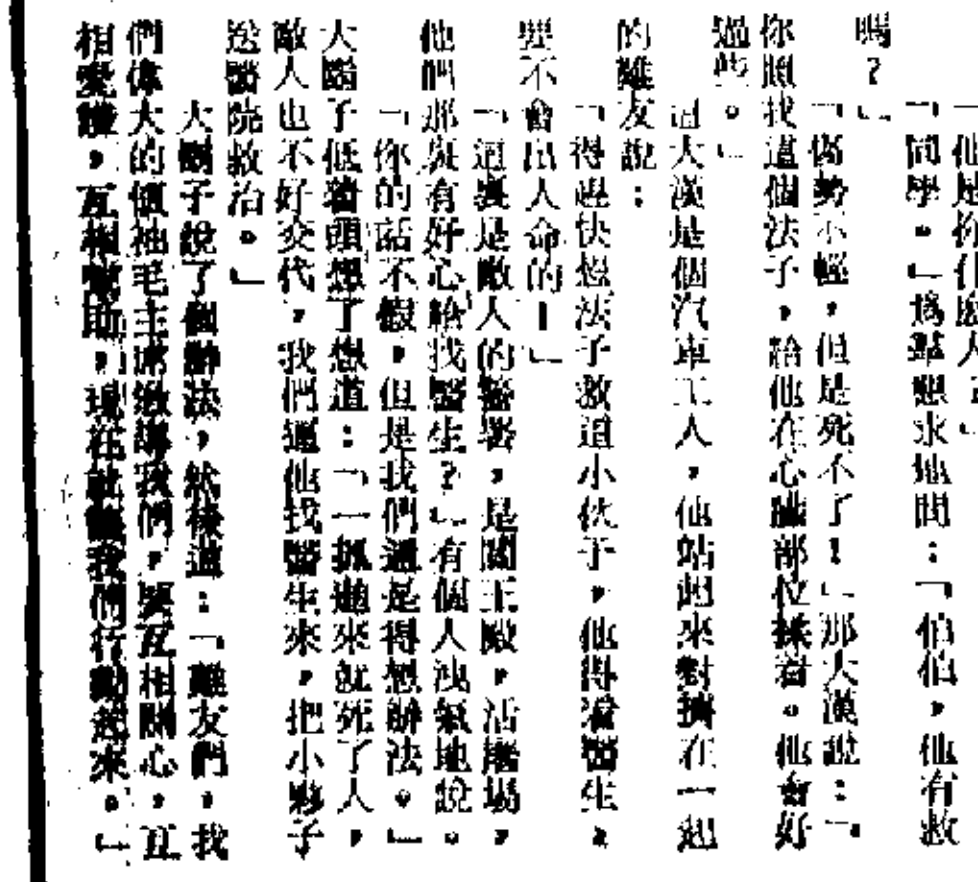 「他是你什麽人？」
「同學。」爲羣懇求地問：「伯伯，他有救
嗎？」
「傷勢不輕，但是死不了！」那大漢說：「
你照我這個法子，給他在心臟部位揉着。他會好
過些。」
這大漢是個汽車工人，他站起來對擠在一起
的難友說：
「得趕快想法子救這小伙子，他得看醫生，
要不會出人命的！」
「這裏是敵人的警署，是閻王殿，活屠場，
他們那裏有好心給找醫生？」有個人洩氣地說。
「你的話不假，但是我們還是得想辦法。」
大鬍子低着頭想了想道：「一抓進來就死了人，
敵人也不好交代，我們逼他找醫生來，把小夥子
送醫院救治。」
大鬍子說了個辦法，然後道：「難友們，我
們偉大的領袖毛主席敎導我們，要互相關心，互
相愛護，互相幫助，現在就讓我們行動起來。」